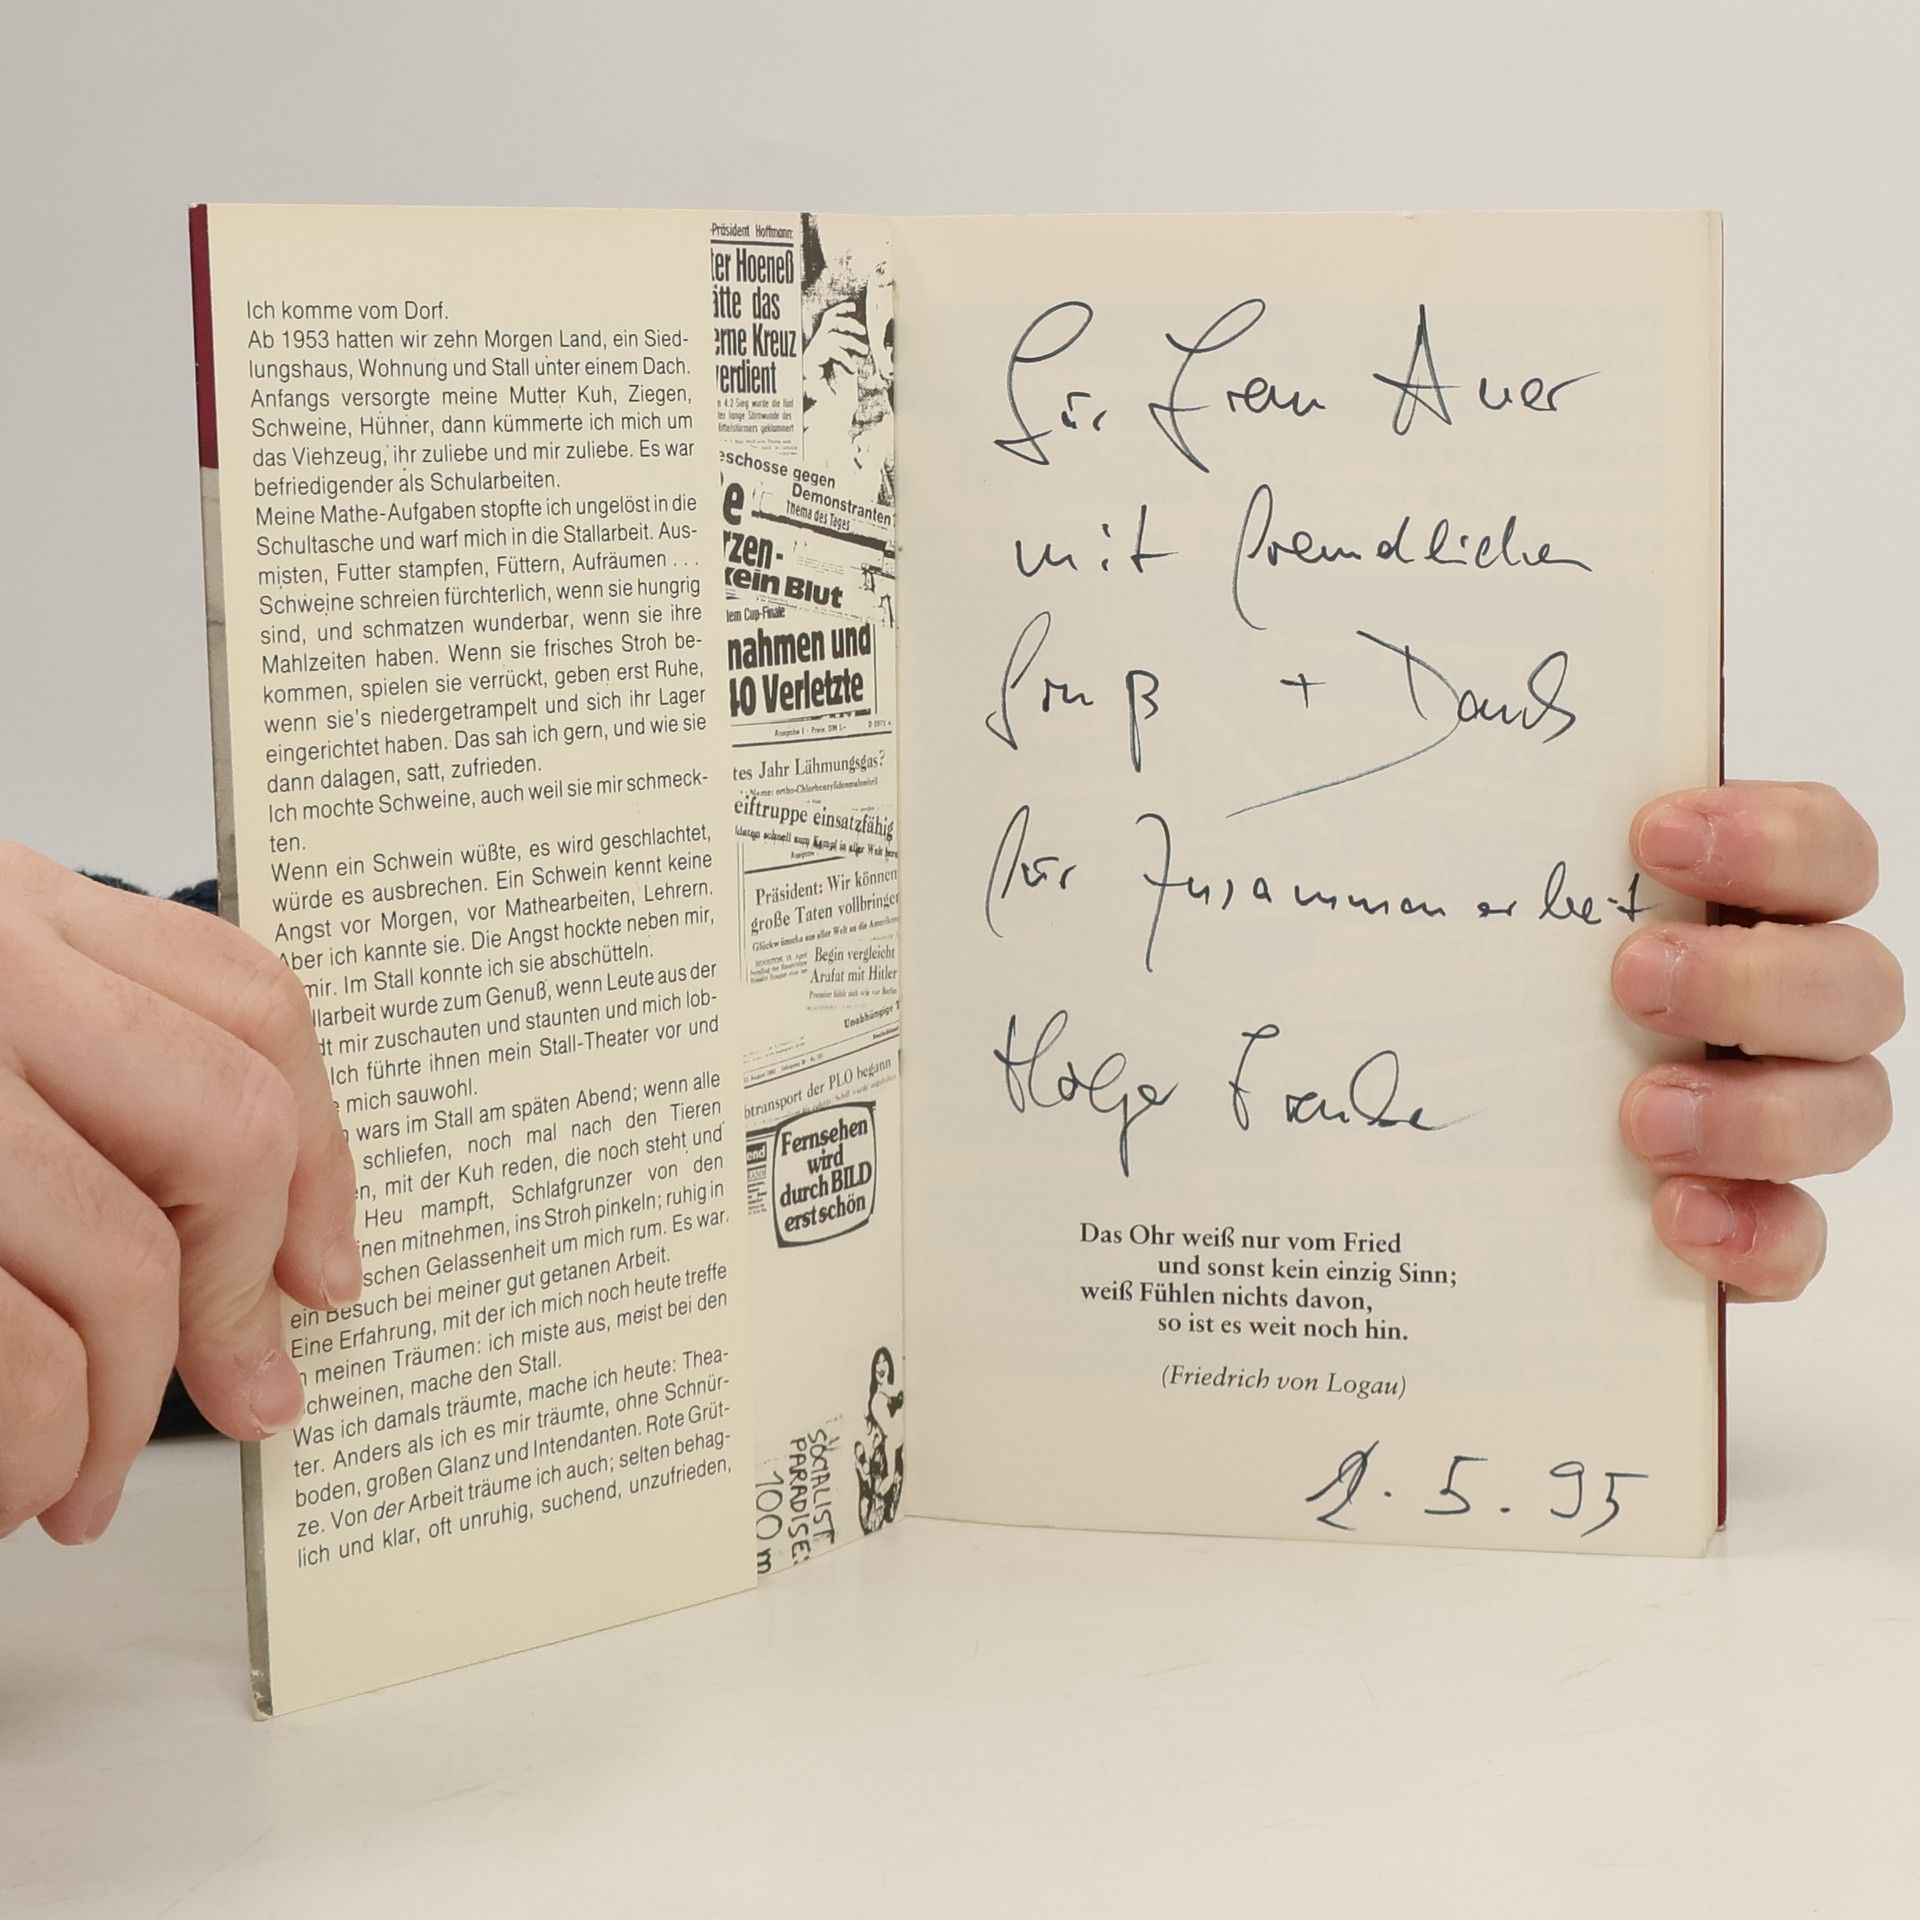 Ich komme vom Dorf.
Ab 1953 hatten wir zehn Morgen Land, ein Sied-
lungshaus, Wohnung und Stall unter einem Dach.
Anfangs versorgte meine Mutter Kuh, Ziegen,
Schweine, Hühner, dann kümmerte ich mich um
das Viehzeug, ihr zuliebe und mir zuliebe. Es war
befriedigender als Schularbeiten.
Meine Mathe-Aufgaben stopfte ich ungelöst in die
Schultasche und warf mich in die Stallarbeit. Aus-
misten, Futter stampfen, Füttern, Aufräumen . . .
Schweine schreien fürchterlich, wenn sie hungrig
sind, und schmatzen wunderbar, wenn sie ihre
Mahlzeiten haben. Wenn sie frisches Stroh be-
kommen, spielen sie verrückt, geben erst Ruhe,
wenn sie's niedergetrampelt und sich ihr Lager
eingerichtet haben. Das sah ich gern, und wie sie
dann dalagen, satt, zufrieden.
Ich mochte Schweine, auch weil sie mir schmeck-
ten.
Wenn ein Schwein wüßte, es wird geschlachtet,
würde es ausbrechen. Ein Schwein kennt keine
Angst vor Morgen, vor Mathearbeiten, Lehrern.
Aber ich kannte sie. Die Angst hockte neben mir,
mir. Im Stall konnte ich sie abschütteln.
llarbeit wurde zum Genuß, wenn Leute aus der
dt mir zuschauten und staunten und mich lob-
Ich führte ihnen mein Stall-Theater vor und
mich sauwohl.
wars im Stall am späten Abend; wenn alle
schliefen, noch mal nach den Tieren
en, mit der Kuh reden, die noch steht und
Heu mampft, Schlafgrunzer von den
inen mitnehmen, ins Stroh pinkeln; ruhig in
schen Gelassenheit um mich rum. Es war
ein Besuch bei meiner gut getanen Arbeit.
Eine Erfahrung, mit der ich mich noch heute treffe
n meinen Träumen: ich miste aus, meist bei den
chweinen, mache den Stall.
Was ich damals träumte, mache ich heute: Thea-
ter. Anders als ich es mir träumte, ohne Schnür-
boden, großen Glanz und Intendanten. Rote Grüt-
ze. Von der Arbeit träume ich auch; selten behag-
lich und klar, oft unruhig, suchend, unzufrieden,
-Präsident Hoffmann:
ter Hoeneß
ätte das
erne Kreuz
verdient
eschosse gegen
Demonstranten
Thema des Tages
rzen-
kein Blut
dem Cup-Finale
nahmen und
40 Verletzte
Ausgabe 1 · Preis: DM 1.–
tes Jahr Lähmungsgas?
eiftruppe einsatzfähig
Präsident: Wir können
große Taten vollbringen
Begin vergleicht
Arafat mit Hitler
Unabhängige
btransport der PLO begann
Fernsehen
wird
durch BILD
erst schön
SOCIALIST
PARADISE:
100 m
Für Frau Auer
mit freundlichem
Gruß + Dank
für Zusammenarbeit
Holger Franke
Das Ohr weiß nur vom Fried
und sonst kein einzig Sinn;
weiß Fühlen nichts davon,
so ist es weit noch hin.
(Friedrich von Logau)
2. 5. 95